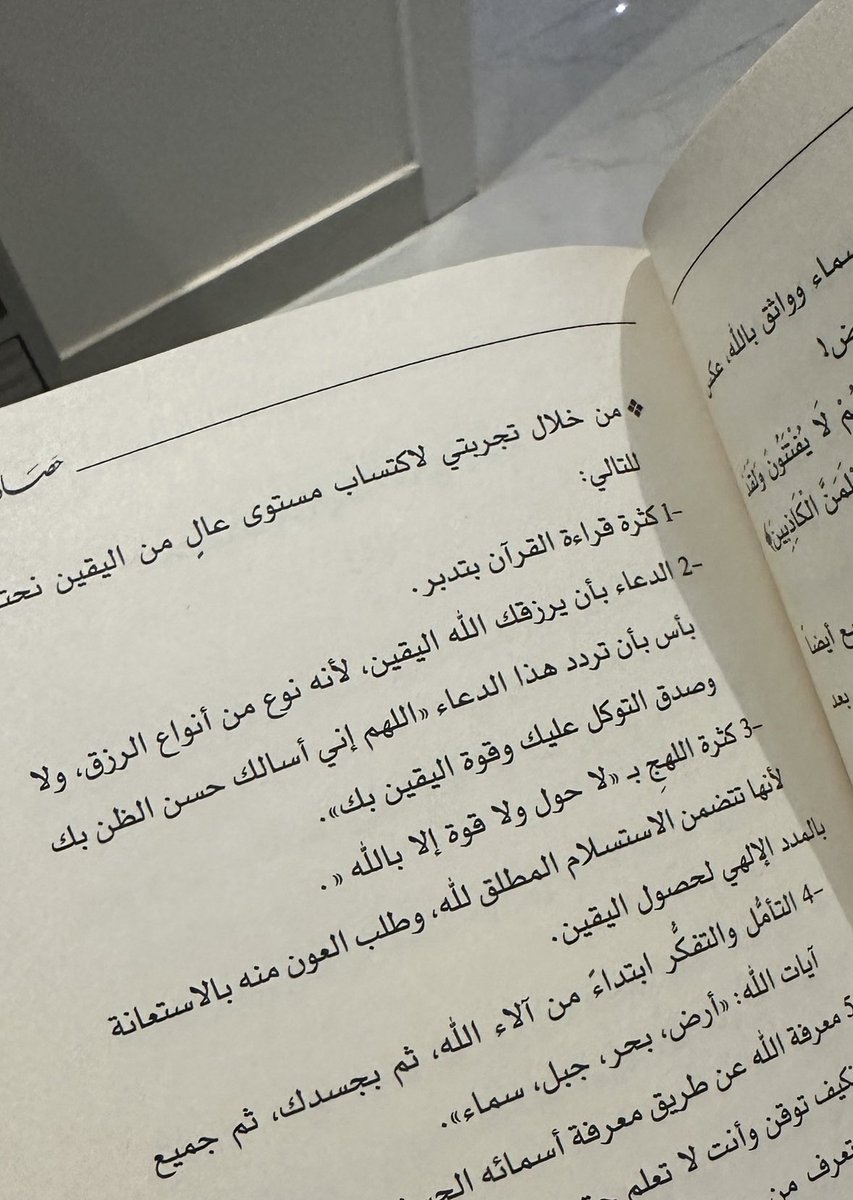 سماء وواثق بالله، عكس
لَا يُفْتَنُونَ
الْكَاذِبِينَ﴾
أيضاً
بعد
❖ من خلال تجربتي لاكتساب مستوى عالٍ من اليقين
للتالي:
1- كثرة قراءة القرآن بتدبر.
2- الدعاء بأن يرزقك الله اليقين، لأنه نوع من أنواع الرزق، ولا
بأس بأن تردد هذا الدعاء «اللهم إني أسالك حسن الظن بك
وصدق التوكل عليك وقوة اليقين بك».
3- كثرة اللهجِ بـ «لا حول ولا قوة إلا بالله «.
لأنها تتضمن الاستسلام المطلق لله، وطلب العون منه بالاستعانة
بالمدد الإلهي لحصول اليقين.
4- التأمُّل والتفكُّر ابتداءً من آلاء الله، ثم بجسدك، ثم جميع
آيات الله: «أرض، بحر، جبل، سماء».
5 معرفة الله عن طريق معرفة أسمائه
فكيف توقن وأنت لا تعلم
تعرف من